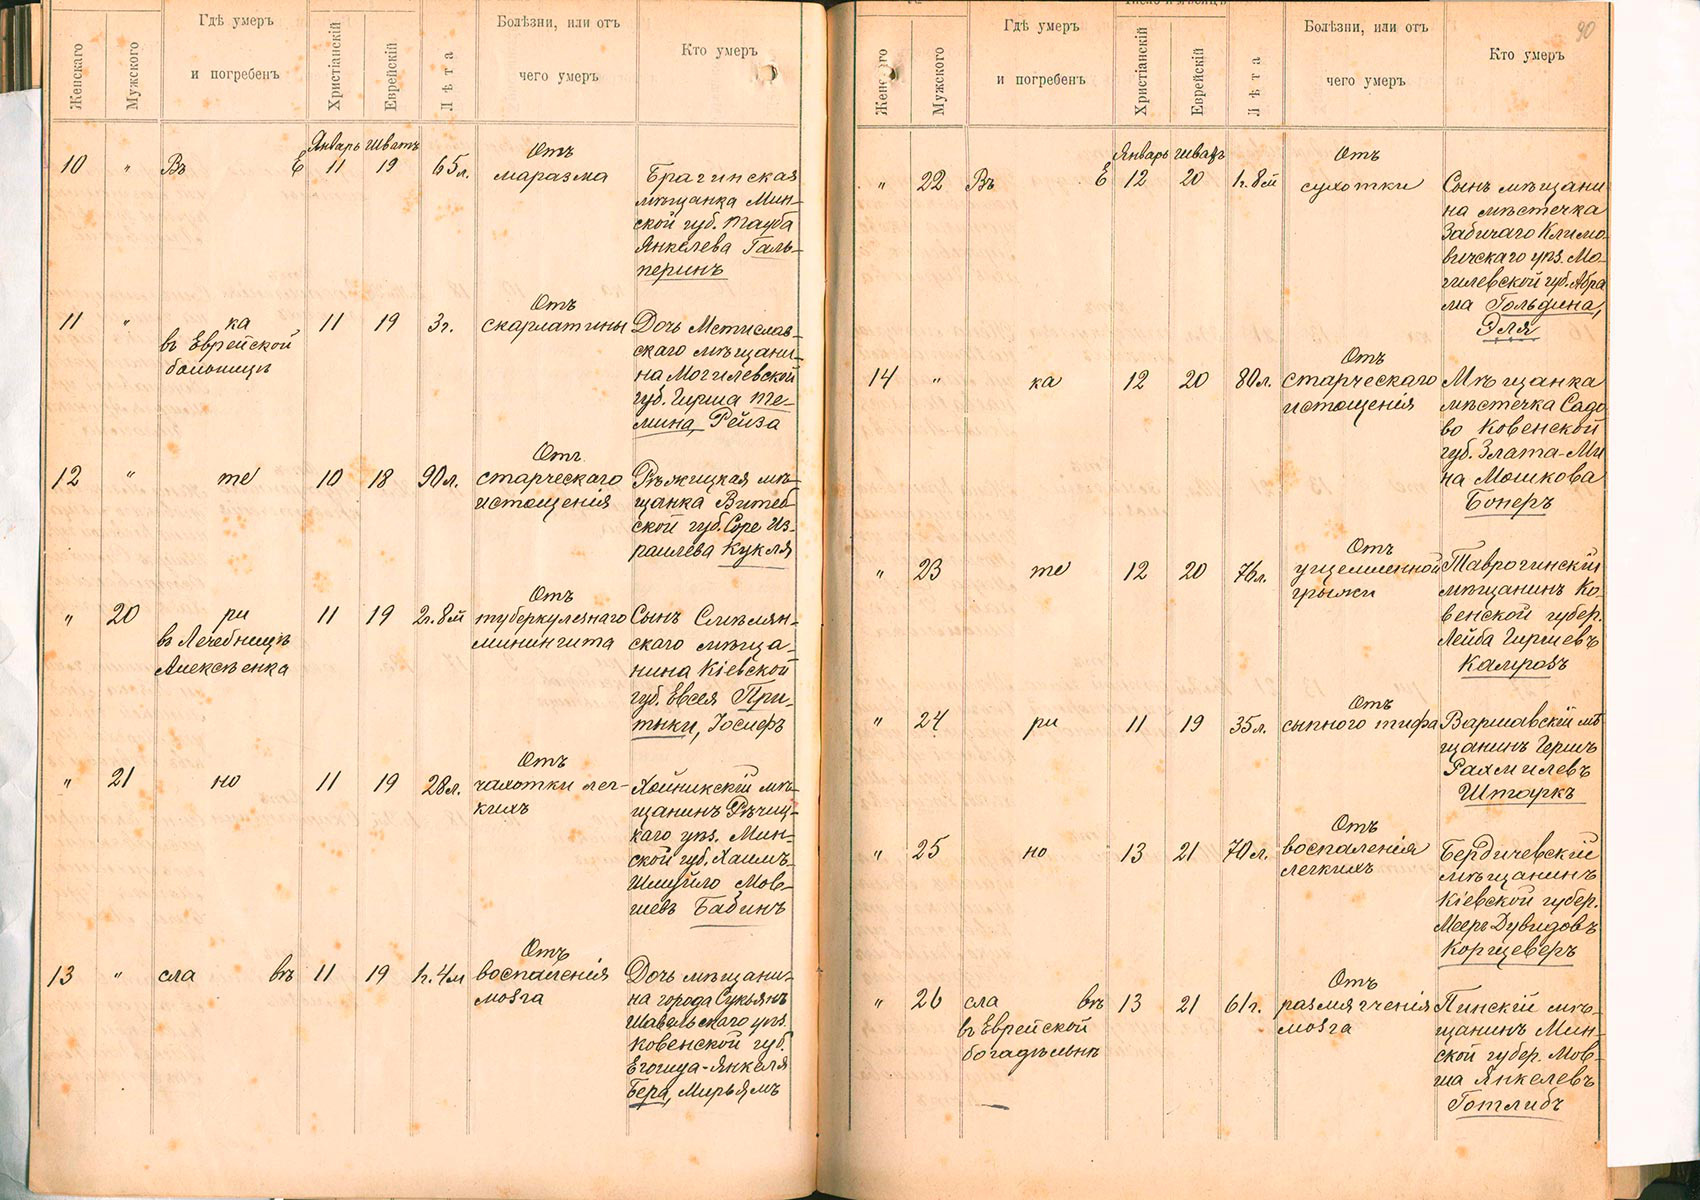 Женскаго
Мужского
Гдѣ умеръ
и погребенъ
Христіанскій
Еврейскій
Лѣта
Болѣзни, или отъ
чего умеръ
Кто умеръ
Январь Шватъ
10 " Въ Е 11 19 65л.
Отъ
маразма
Брагинская
мѣщанка Мин-
ской губ. Тауба
Янкелева Галь-
перинъ
11 " ка 11 19 3г.
въ Еврейской
больницѣ
Отъ
скарлатины
Дочь Мстислав-
скаго мѣщани-
на Могилевской
губ. Гирша Те-
мина, Рейза
12 " те 10 18 90л.
Отъ
старческаго
истощенія
Рѣжицкая мѣ-
щанка Витеб-
ской губ. Соре Из-
раилева Кукля
" 20 ри 11 19 2г. 8м
въ Лечебницѣ
Алексѣенка
Отъ
туберкулезнаго
минингита
Сынъ Смѣлян-
скаго мѣща-
нина Кіевской
губ. Евсея При-
тыки, Іосифъ
" 21 но 11 19 28л.
Отъ
чахотки лег-
кихъ
Хойникскій мѣ-
щанинъ Рѣчиц-
каго уѣз. Мин-
ской губ. Хаимъ-
Шмуйло Мов-
шевъ Бабинъ
13 " сла въ 11 19 1г. 4м
Отъ
воспаленія
мозга
Дочь мѣщани-
на города
Шавельскаго уѣз.
Ковенской губ.
Янкеля
Бера, Мирьямъ
90
Женскаго
Мужского
Гдѣ умеръ
и погребенъ
Число и мѣсяцъ
Христіанскій
Еврейскій
Лѣта
Болѣзни, или отъ
чего умеръ
Кто умеръ
Январь Шватъ
" 22 Въ Е 12 20 1г. 8м
Отъ
сухотки
Сынъ мѣщани
на мѣстечка
Забичаго Климо-
вичскаго уѣз. Мо-
гилевской губ. Абра
ма Гольдина,
Эля
14 " ка 12 20 80л.
Отъ
старческаго
истощенія
Мѣщанка
мѣстечка Садо
во Ковенской
губ. Злата-Ми
на Мошкова
Бонеръ
" 23 те 12 20 76л.
Отъ
ущемленной
грыжи
Таврогинскій
мѣщанинъ Ко-
венской губер.
Лейба Гиршевъ
" 24 ри 11 19 35л.
Отъ
сыпного тифа
Варшавскій мѣ
щанинъ Гершъ
Рахмилевъ
Штаркъ
" 25 но 13 21 70л.
Отъ
воспаленія
легкихъ
Бердичевскій
мѣщанинъ
Кіевской губер.
Мееръ Дувидовъ
Корщеверъ
" 26 сла въ 13 21 61г.
въ Еврейской
богадѣльнѣ
Отъ
размягченія
мозга
Пинскій мѣ-
щанинъ Мин-
ской губер. Мов-
ша Янкелевъ
Готлибъ